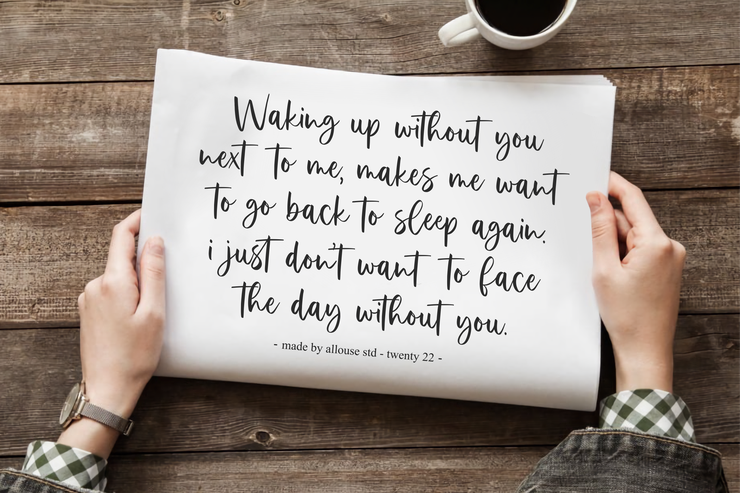 Waking up without you
next to me, makes me want
to go back to sleep again.
i just don't want to face
the day without you.
- made by allouse std - twenty 22 -